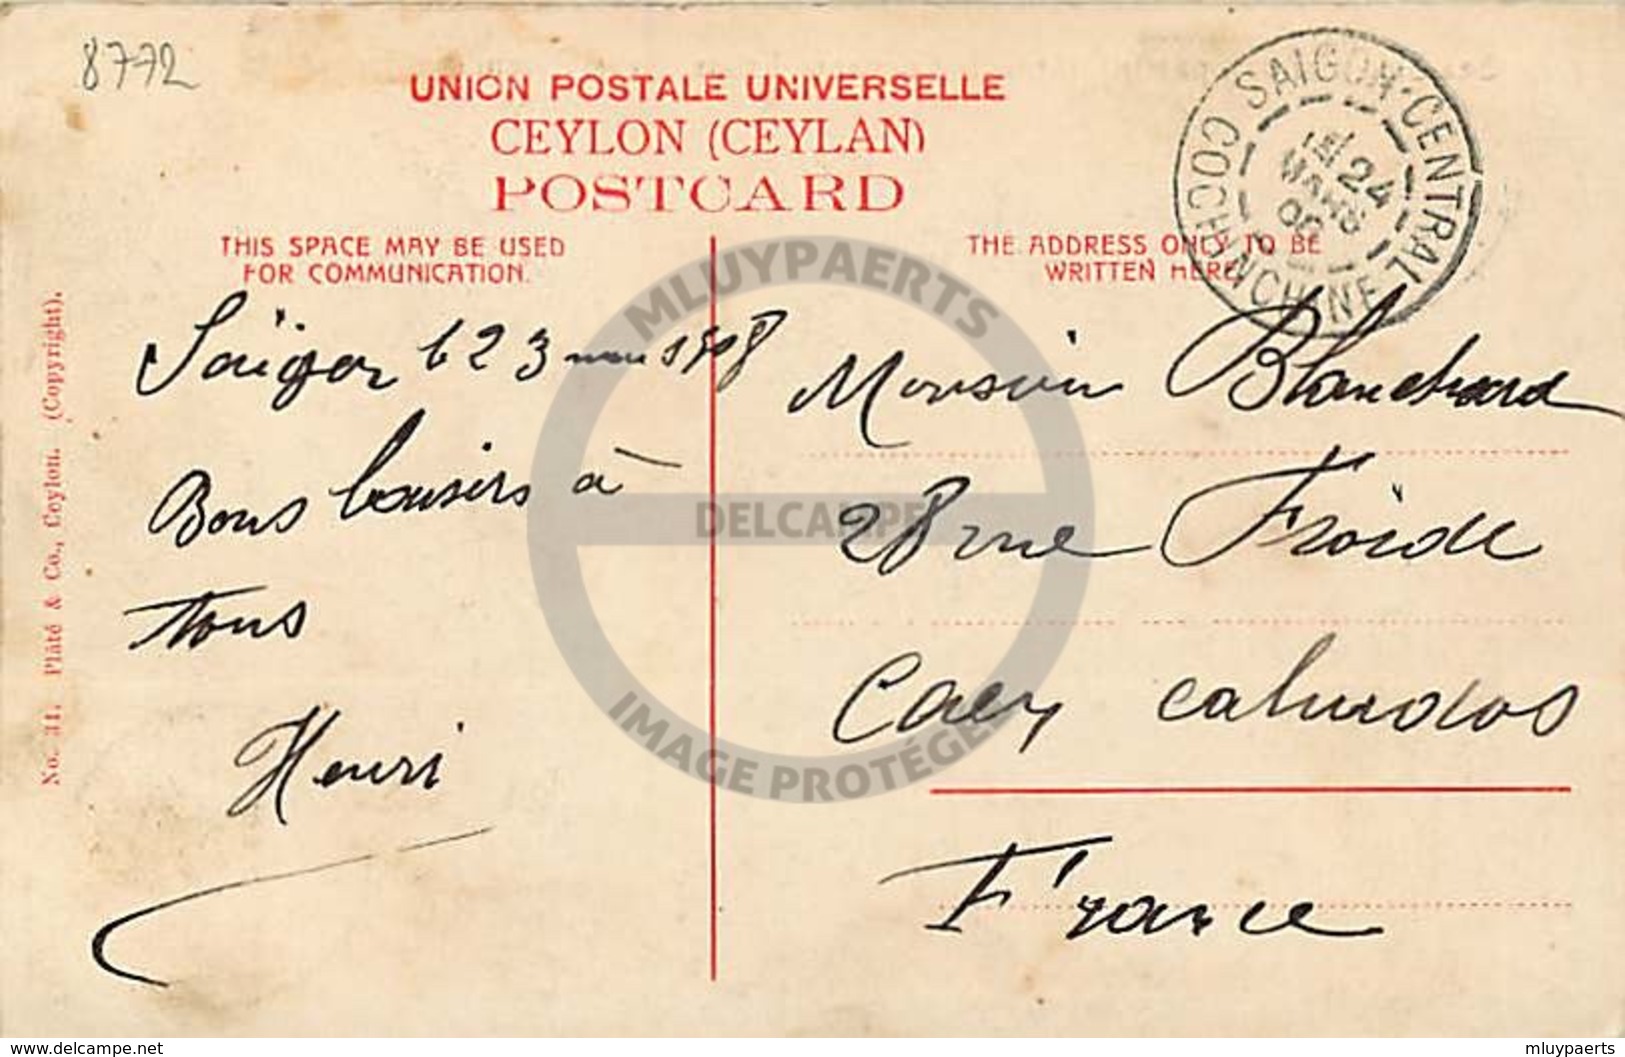 8772
UNION POSTALE UNIVERSELLE
CEYLON (CEYLAN)
POSTCARD
SAIGON-CENTRAL
COCHINCHINE
24
MARS
THIS SPACE MAY BE USED
FOR COMMUNICATION.
THE ADDRESS ONLY TO BE
WRITTEN HERE
Saïgon le 23 mars 1908
Bons baisers à
tous
Henri
Monsieur Blanchard
28 rue Froide
Caen calvados
France
No. 31. Plâté & Co., Ceylon. (Copyright).
MLUYPAERTS
DELCAMPE
IMAGE PROTÉGÉE
https://www.delcampe.net
mluypaerts